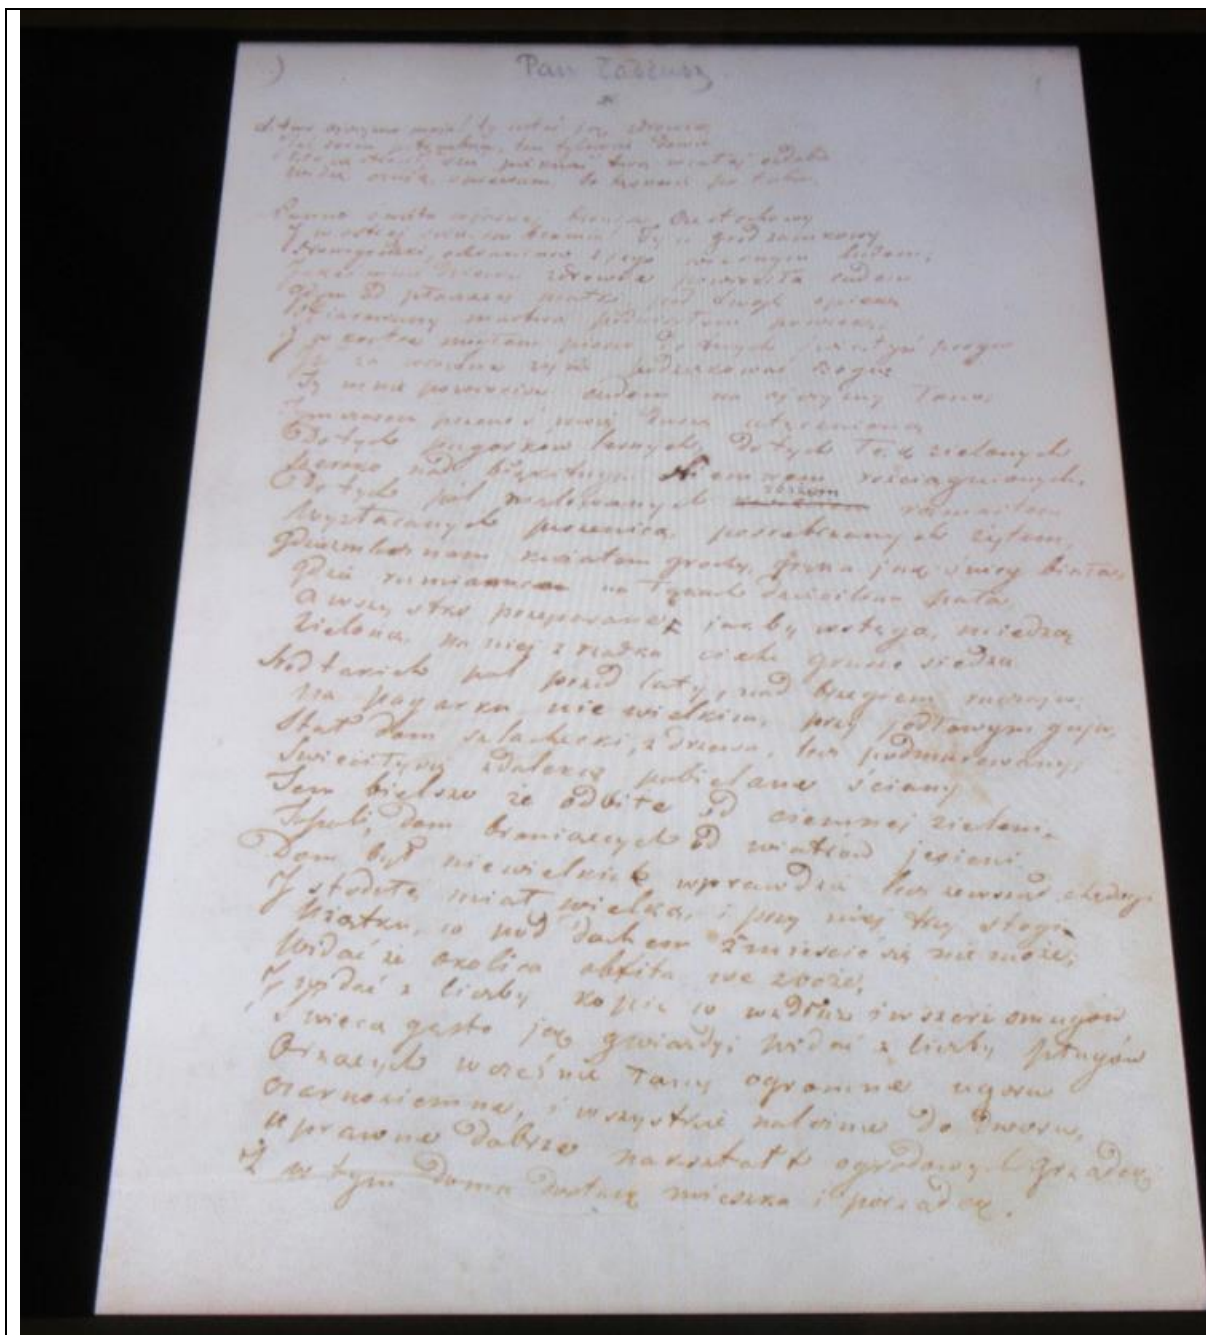 Pan Tadeusz
Litwo ojczyzno moja! ty jesteś jak zdrowie
Panno święta co jasnej bronisz Częstochowy
I w ostrej świecisz bramie! Ty co gród zamkowy
Nowogródzki ochraniasz z jego wiernym ludem,
zdrowia powróciła cudem
Gdym od płaczącej matki pod twoję opiekę
Ofiarowany martwą podniosłem powiekę,
I zaraz mogłem pieszo do twych świątyń progu
Iść za wrócone życie podziękować Bogu
Tak nas powrócisz cudem na ojczyzny łono.
Tymczasem przenoś moję duszę utęsknioną
Do tych pagórków leśnych, Do tych łąk zielonych
Szeroko nad błękitnym Niemnem rościągnionych,
Do tych pól malowanych zbożem rozmaitem
Wyzłacanych pszenicą, posrebrzanych żytem,
gryka jak śnieg biała,
Gdzie
A wszystko przepasane jakby wstęgą, miedzą
Zieloną, na niej z rzadka ciche grusze siedzą
Śród takich pól przed laty, nad brzegiem ruczaju,
Na pagórku niewielkim, przy jodłowym gaju
Stał dom szlachecki, z drzewa, lecz podmurowany;
Świeciły się zdaleka pobielane ściany
Tem bielsze że odbite od ciemnej zieleni
Topoli, dom broniących od wiatrów jesieni
Dom był niewielki wprawdzie lecz zewsząd chędogi
I stodołę miał wielką, i przy niej trzy stogi
Użątku, co pod dachem zmieścić się nie może;
Widać że okolica obfita we zboże,
I widać z liczby kopic co wzdłuż i wszerz smugów
Świecą gęsto jak gwiazdy; widać z liczby pługów
Orzących wcześnie łany ogromne ugoru
Czarnoziemne, i wszystkie należne do dworu,
Uprawne dobrze nakształt ogrodowych grządek;
I w tym domu dostatek mieszka i porządek.